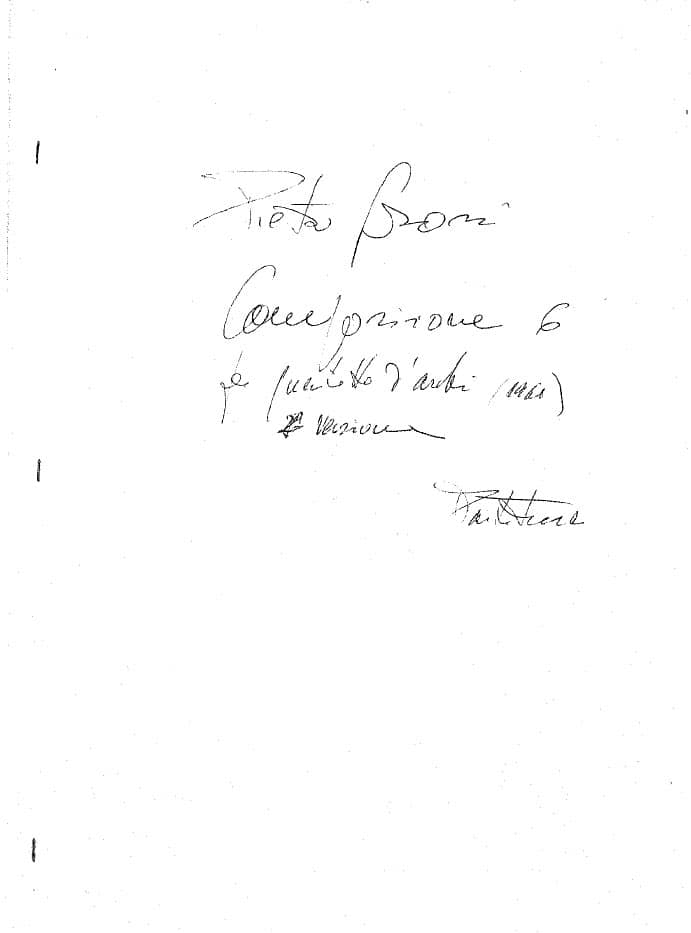 Pietro Grossi
Composizione 6
per quartetto d'archi (1961)
2ª versione
Partitura